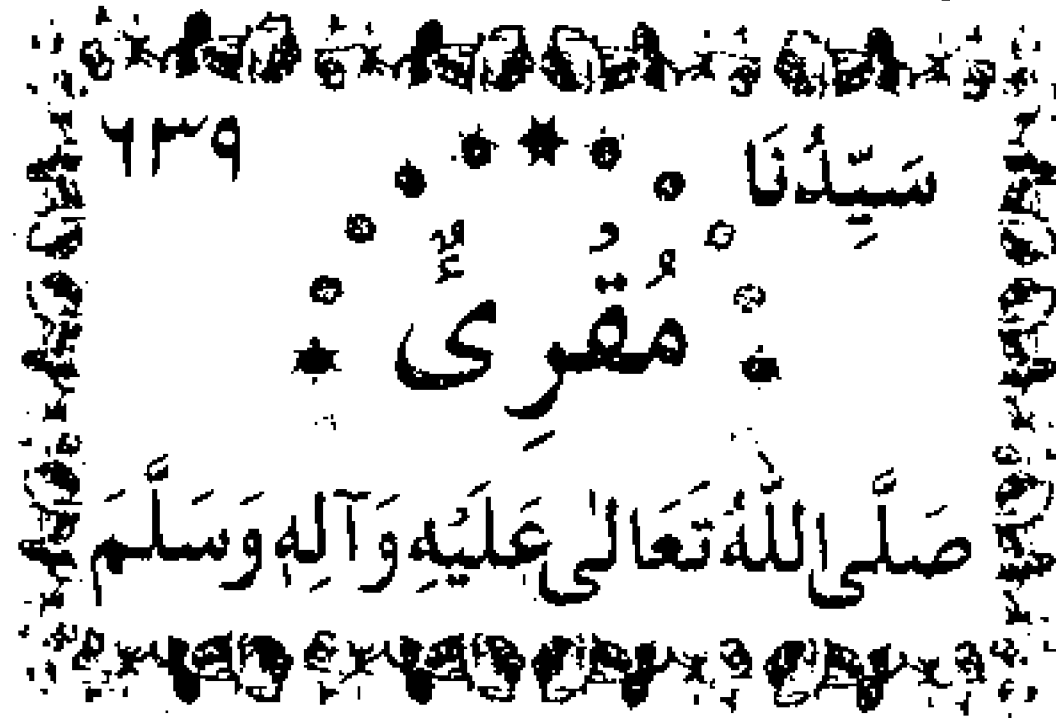 سَيِّدُنَا ٦٣٩
مُقْرِیٌّ
صَلَّى اللّٰهُ تَعَالٰى عَلَيْهِ وَآلِهٖ وَسَلَّمَ